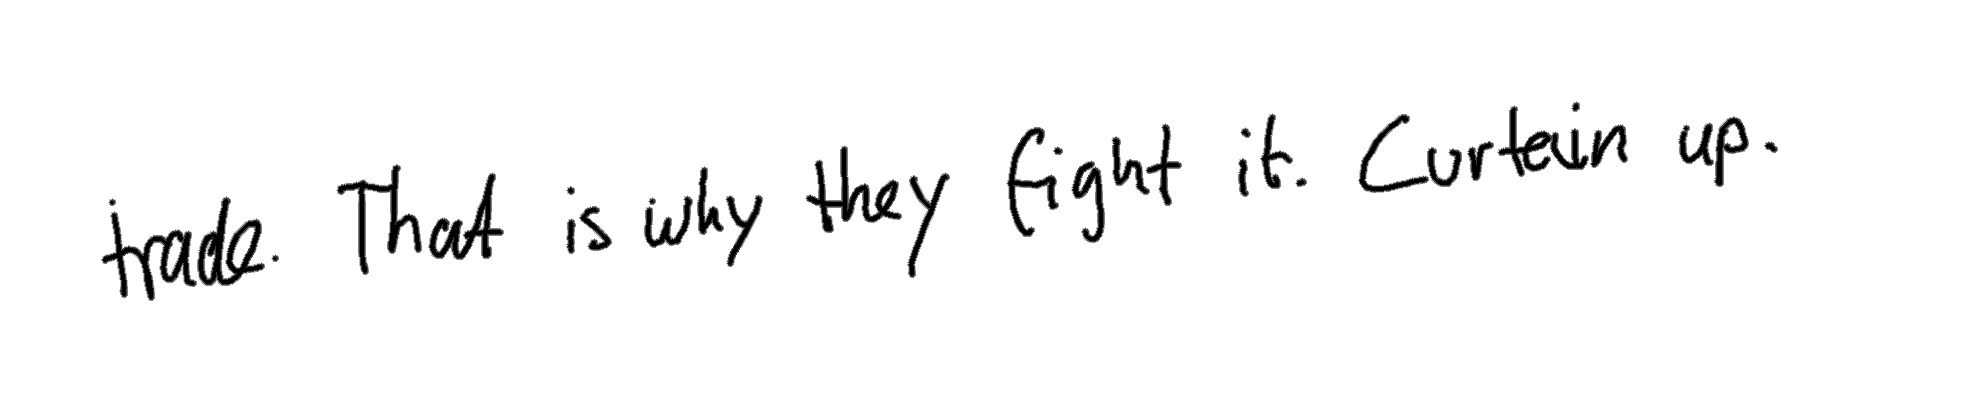 trade. That is why they fight it. Curtein up.